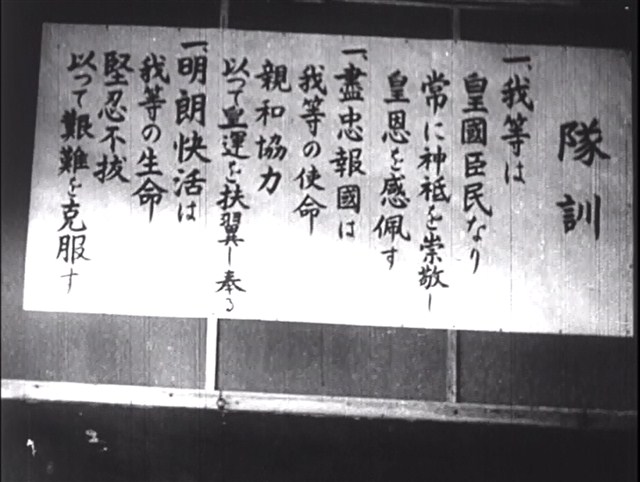 隊訓
一、我等は
皇國臣民なり
常に神祇を崇敬し
皇恩を感佩す
一、盡忠報國は
我等の使命
親和協力
以つて皇運を扶翼し奉る
一、明朗快活は
我等の生命
堅忍不拔
以つて艱難を克服す